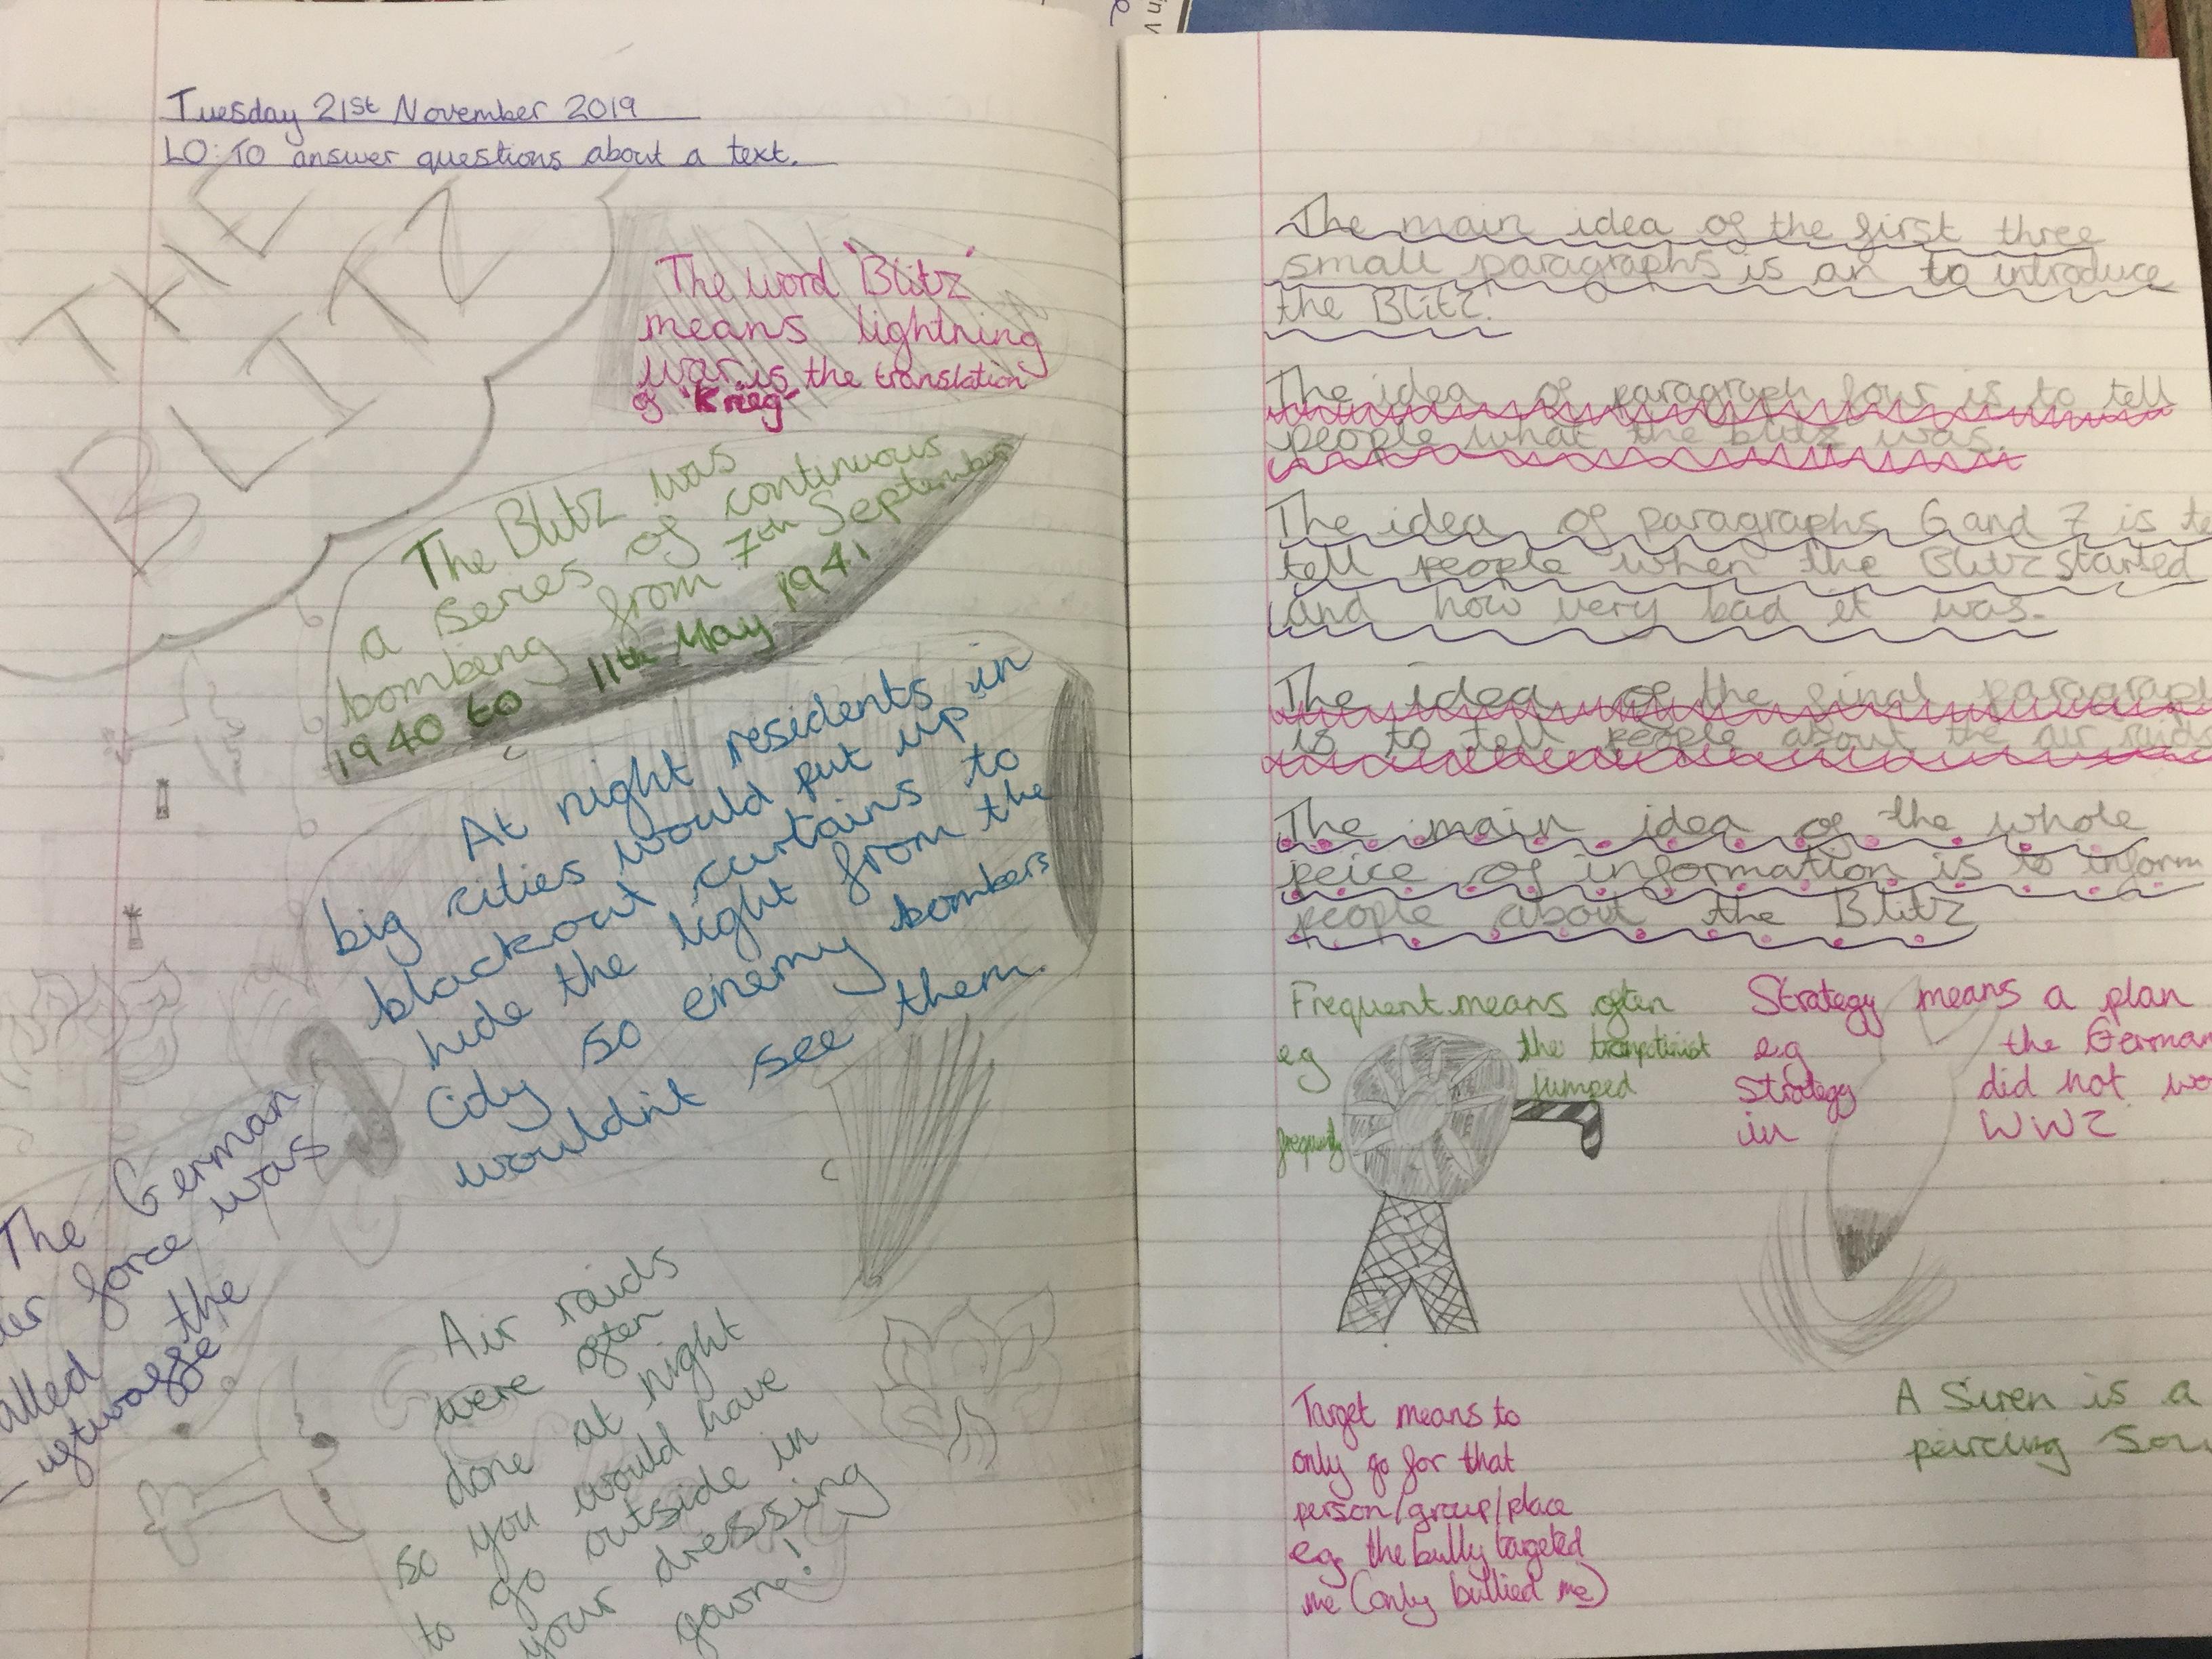 Tuesday 21st November 2019
LO: To answer questions about a text.
THE
BLITZ
The word 'Blitz'
means lightning
war is the translation
of 'Krieg'
The Blitz was
a series of continuous
bombeing from 7th September
1940 to 11th May 1941
At night residents in
big cities would put up
blackout curtains to
hide the light from the
City so enemy bombers
wouldn't see them.
The German
force was
the
Air raids
were often
done at night
so you would have
to go outside in
your dressing
gown!
The main idea of the first three
small paragraphs is an to introduce
the Blitz!
The idea of paragraph four is to tell
people what the blitz was.
The idea of paragraphs 6 and 7 is to
tell people when the Blitz started
and how very bad it was.
The idea of the final paragraph
is to tell people about the air raids
The main idea of the whole
peice of information is to inform
people about the Blitz
Frequent means often
eg the trampolinist
jumped
frequently
Strategy means a plan
e.g the German
strategy did not
in WW2
Target means to
only go for that
person/group/place
eg the bully targeted
me (only bullied me)
A Siren is a
peircing